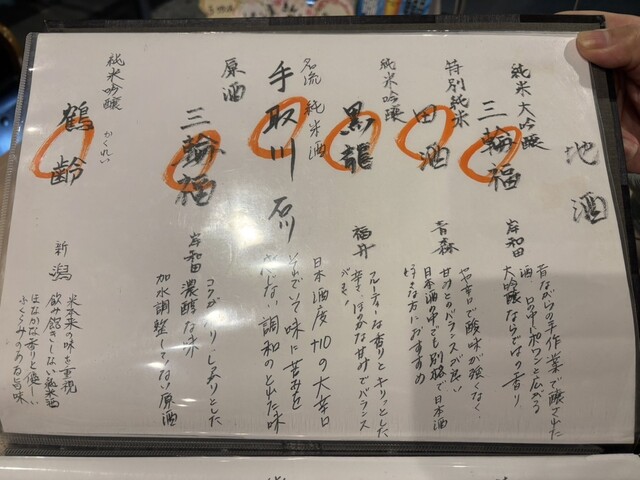 地酒
純米大吟醸
三輪福
岸和田
昔ながらの手作業で醸された
酒。口の中でホワンと広がる
大吟醸ならではの香り
特別純米
田酒
青森
やや辛口で酸味が強くなく、
甘みとのバランスが良い
日本酒の中でも別格で日本酒
好きな方におすすめ
純米吟醸
黒龍
福井
フルーティーな香りとキリッとした
辛さ、ほのかな甘みでバランス
名流 純米酒
手取川
石川
日本酒度+10の大辛口
それでいて味に苦みを
感じない調和のとれた味
原酒
三輪福
岸和田
コクがありしっかりとした
濃醇な味
加水調整してない原酒
純米吟醸
鶴齢
かくれい
新潟
米本来の味を重視
飲み飽きしない純米酒
ほのかな香りと優しい
ふくらみのある旨味